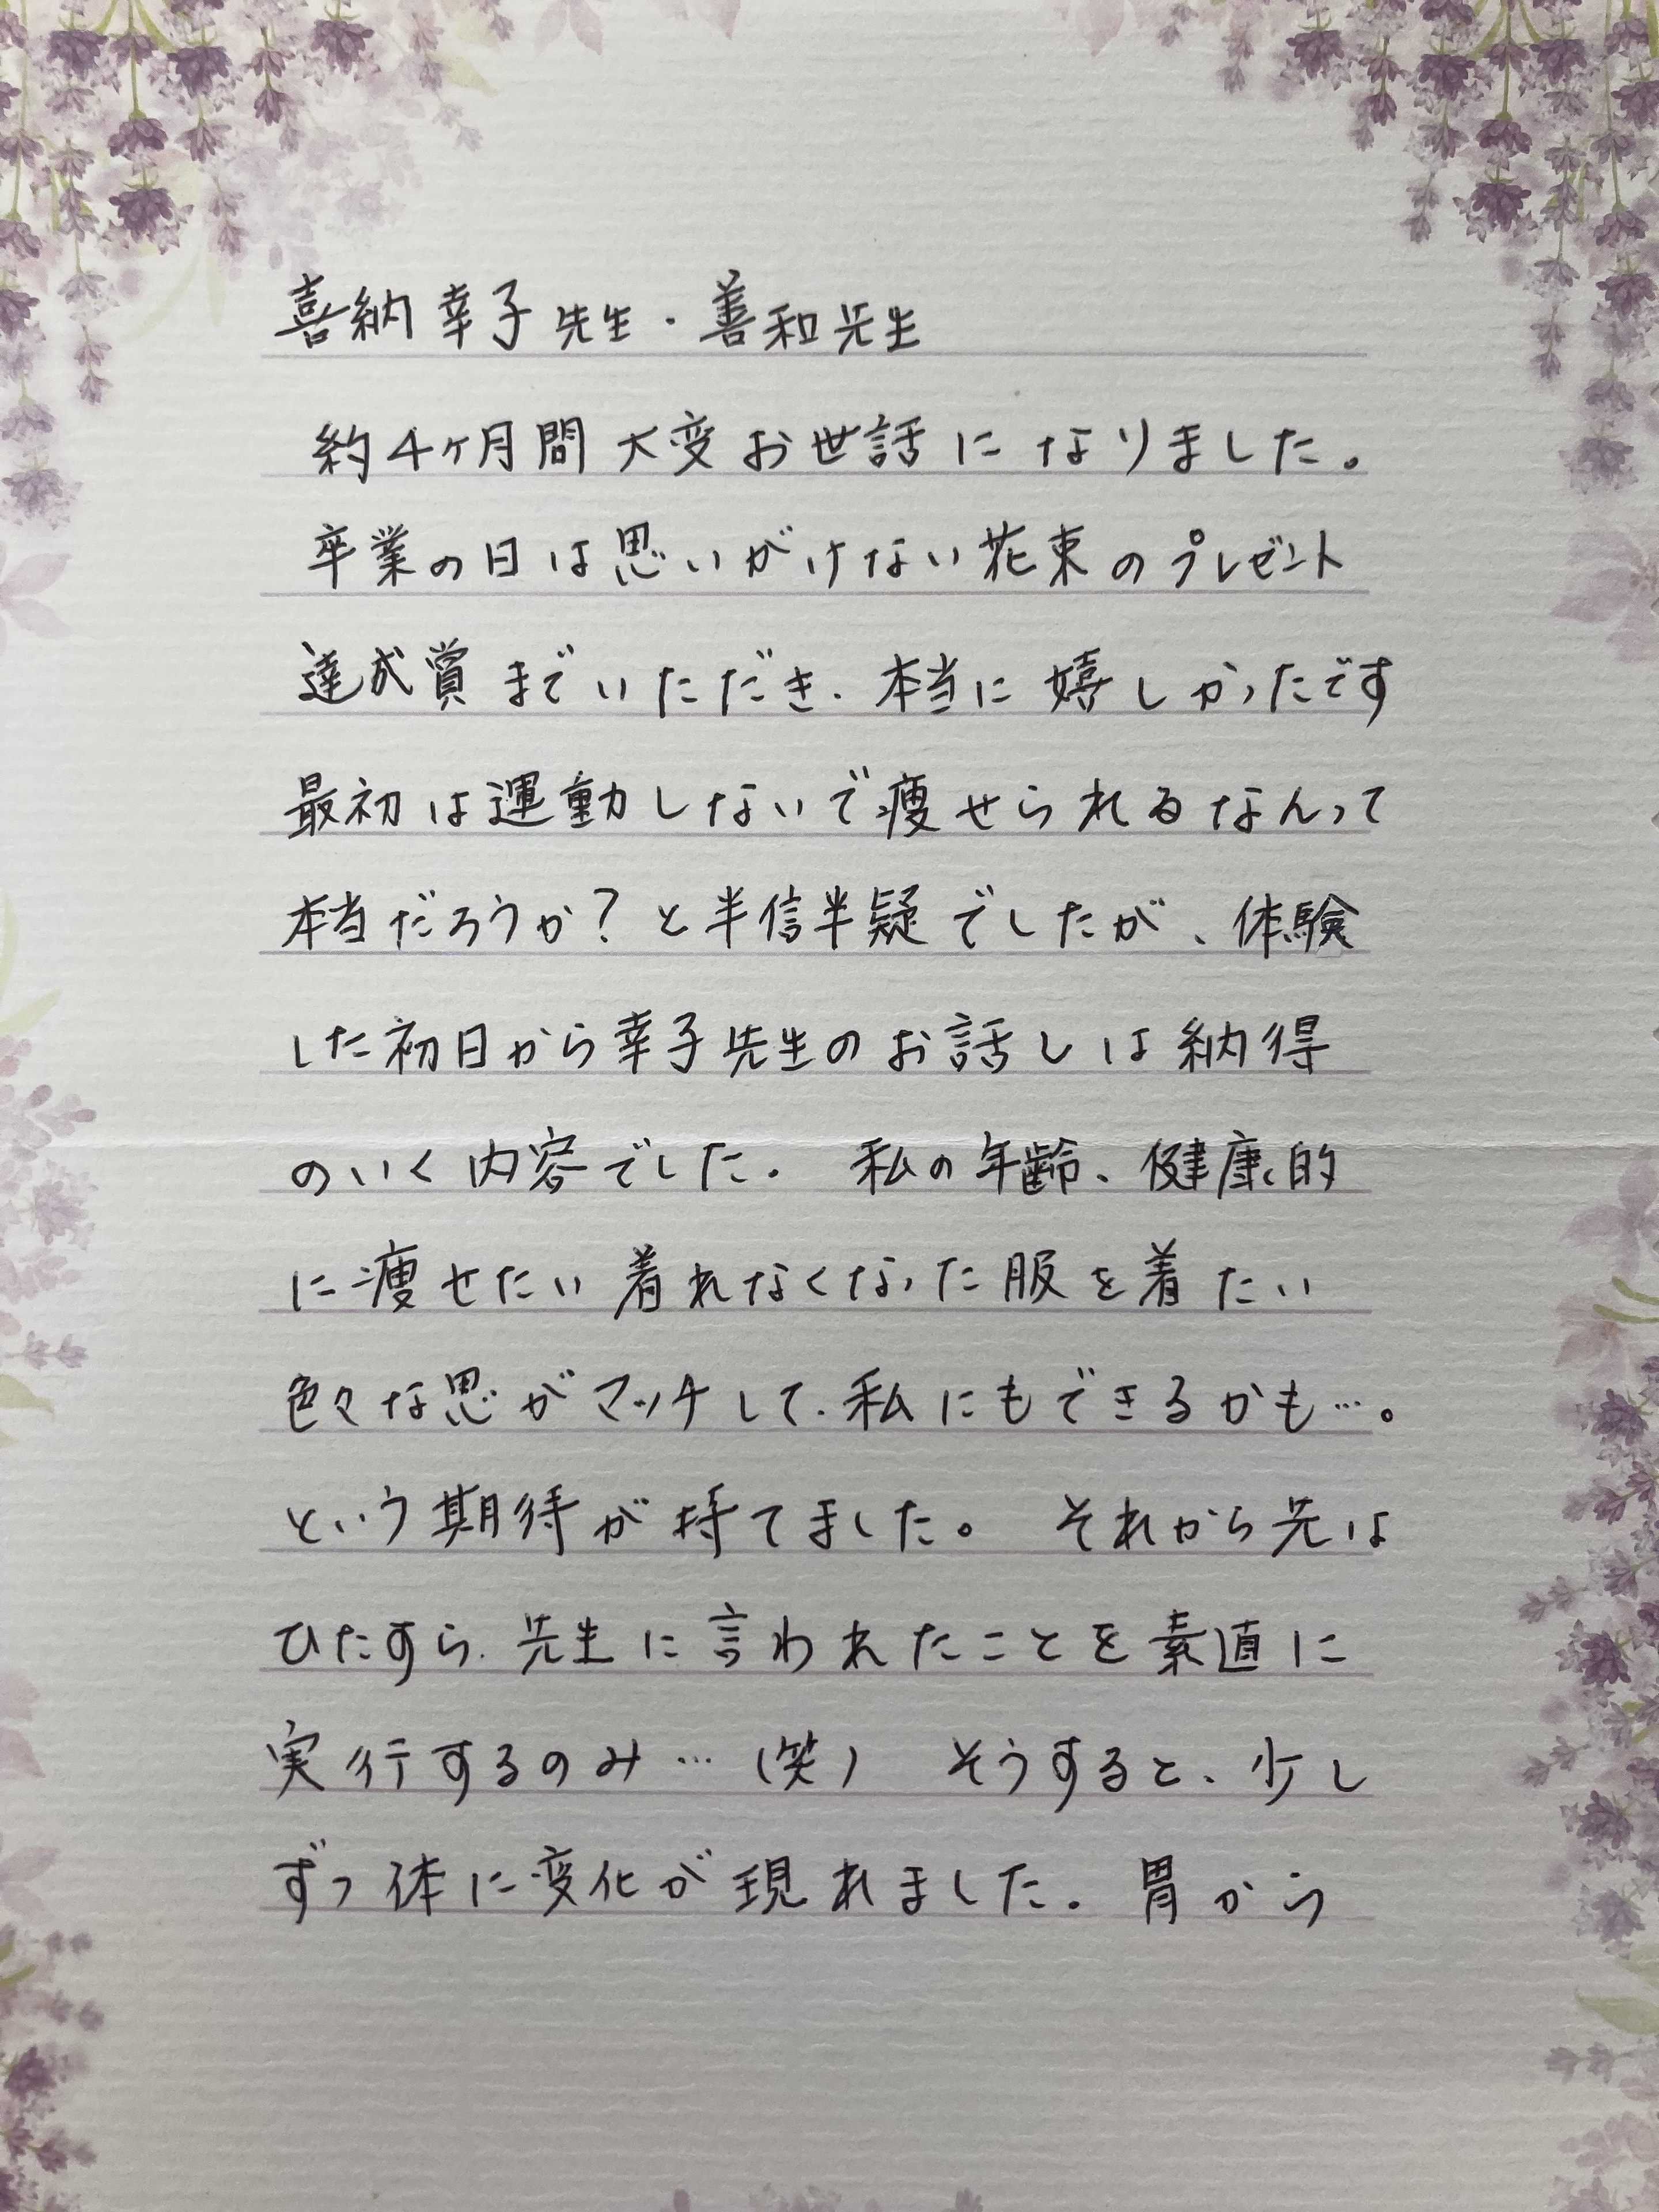 喜納幸子先生・善和先生
約4ヶ月間大変お世話になりました。
卒業の日は思いがけない花束のプレゼント
達成賞までいただき、本当に嬉しかったです
最初は運動しないで痩せられるなんって
本当だろうか?と半信半疑でしたが、体験
した初日から幸子先生のお話しは納得
のいく内容でした。 私の年齢、健康的
に痩せたい着れなくなった服を着たい
色々な思がマッチして、私にもできるかも…。
という期待が持てました。 それから先は
ひたすら、先生に言われたことを素直に
実行するのみ…(笑) そうすると、少し
ずつ体に変化が現れました。胃から